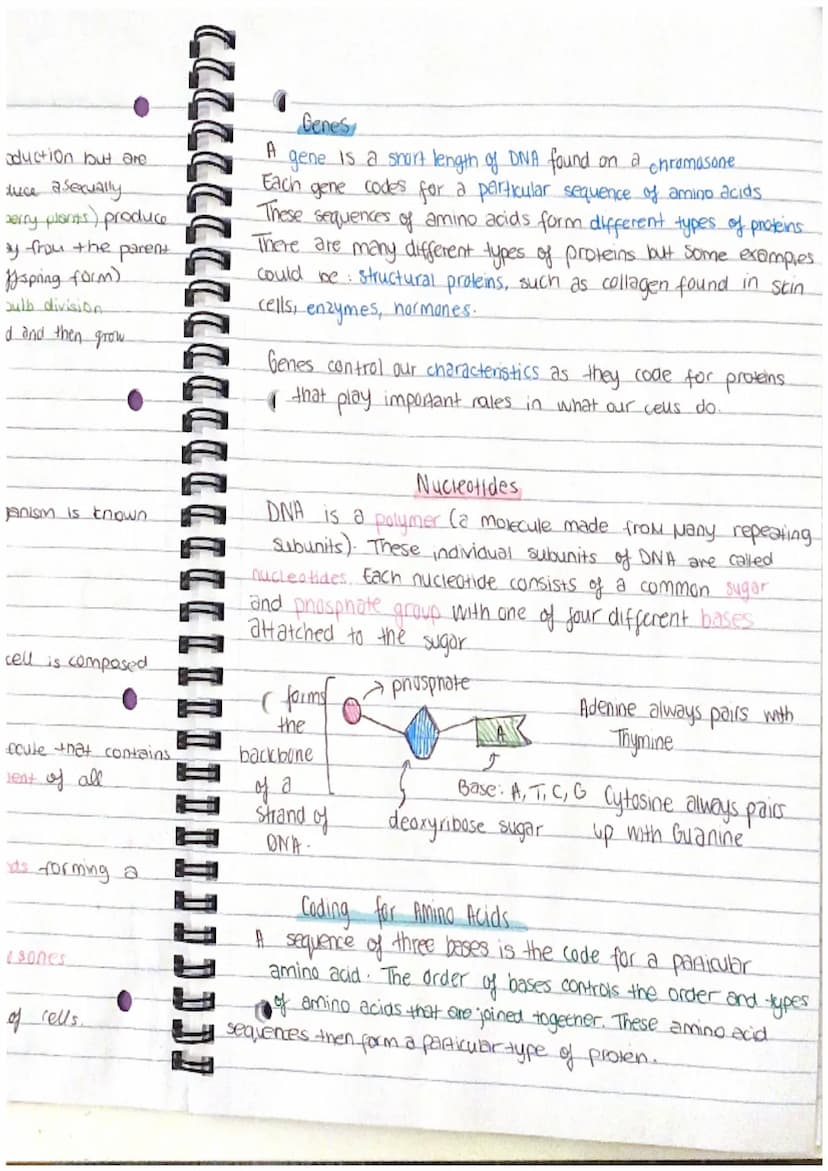 oduction but are
duce asexually
berry plants) produce
y from the parent
ffspring form)
bulb division
d and then grow
anism is known
cell is composed
ecule that contains
ent of all
ds forming a
sones
of cells.
Genes
A gene is a short length of DNA found on a chromosone
Each gene codes for a particular sequence of amino acids
These sequences of amino acids form different types of proteins
There are many different types of proteins but some examples
could be: structural proteins, such as collagen found in skin
cells, enzymes, hormones.
Genes control our characteristics as they code for proteins
that play important roles in what our cells do.
Nucleotides
DNA is a polymer (a molecule made from many repeating
subunits). These individual subunits of DNA are called
nucleotides. Each nucleotide consists of a common sugar
and phosphate group with one of four different bases
attatched to the sugar
forms
the
backbone
of a
strand of
DNA.
phosphate
A
Base: A, T, C, G
deoxyribose sugar
Adenine always pairs with
Thymine
Cytosine always pairs
up with Guanine
Coding for Amino Acids
A sequence of three bases is the code for a particular
amino acid. The order of bases controls the order and types
of amino acids that are joined together. These amino acid
sequences then form a particular type of protein.